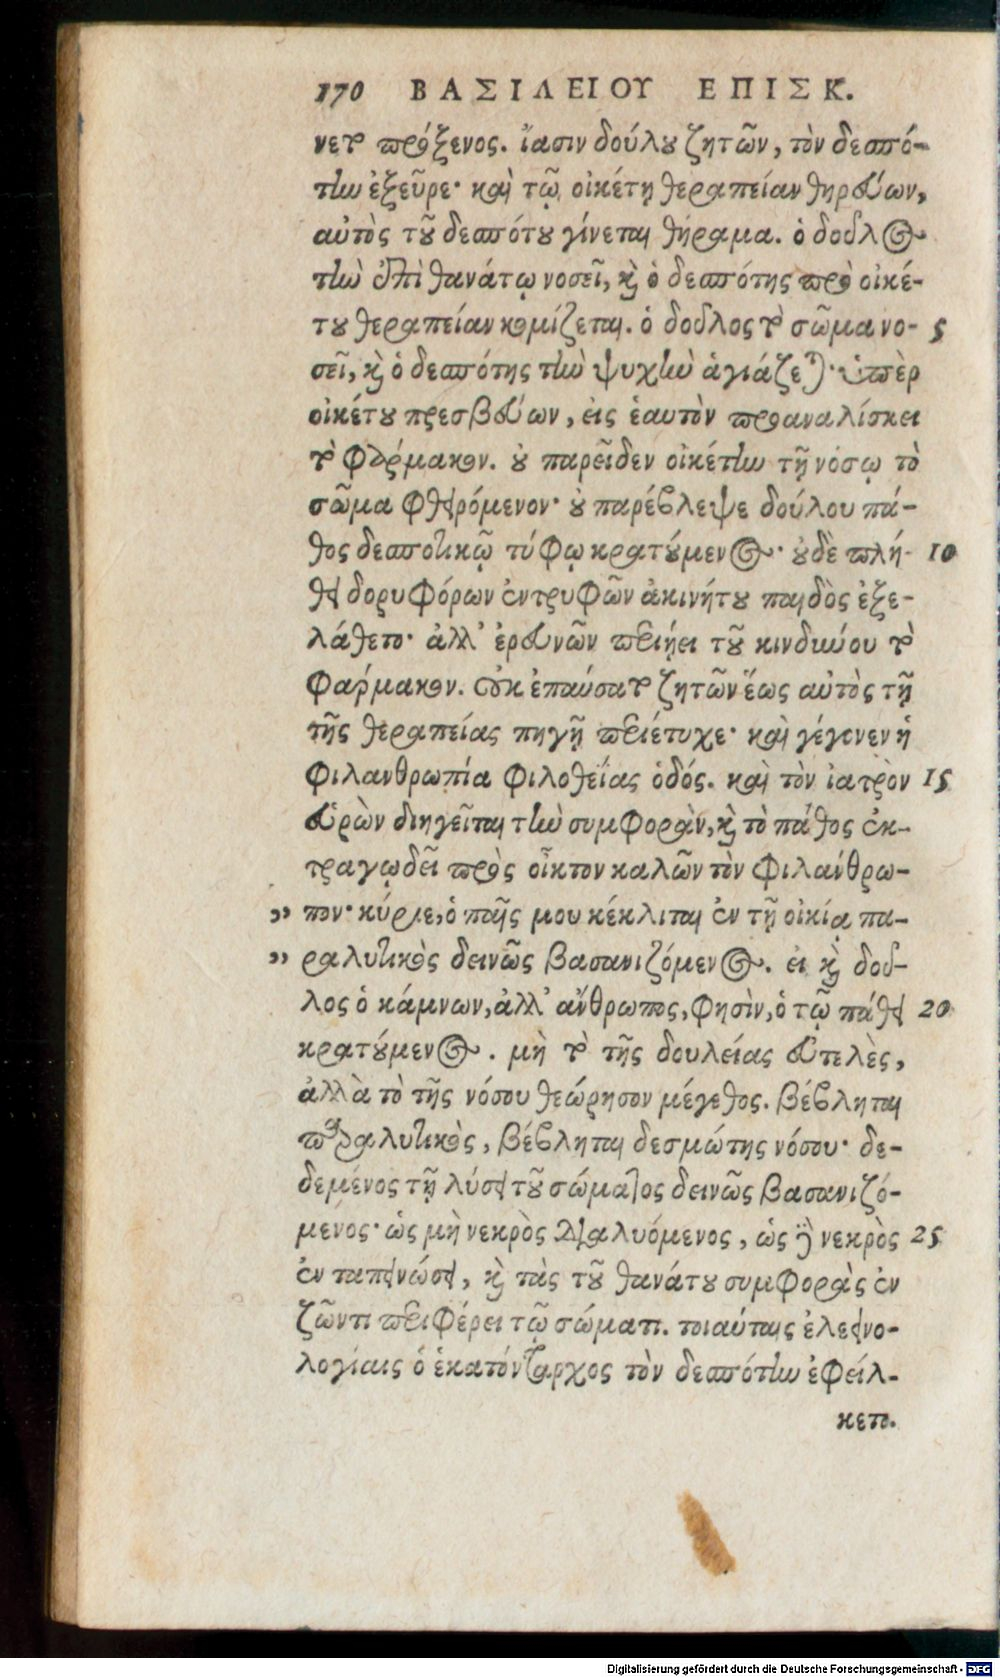 170 ΒΑΣΙΛΕΙΟΥ ΕΠΙΣΚ.
νετο πρόξενος. ἴασιν δούλου ζητῶν, τὸν δεσπό-
την ἐξεῦρε· καὶ τῷ οἰκέτῃ θεραπείαν θηρεύων,
αὐτὸς τοῦ δεσπότου γίνεται θήραμα. ὁ δοῦλος
τὴν ἐπὶ θανάτῳ νοσεῖ, καὶ ὁ δεσπότης πρὸ οἰκέ-
του θεραπείαν κομίζεται. ὁ δοῦλος τὸ σῶμα νο- 5
σεῖ, καὶ ὁ δεσπότης τὴν ψυχὴν ἁγιάζεται· ὑπὲρ
οἰκέτου πρεσβεύων, εἰς ἑαυτὸν προαναλίσκει
τὸ φάρμακον. οὐ παρεῖδεν οἰκέτην τῇ νόσῳ τὸ
σῶμα φθειρόμενον· οὐ παρέβλεψε δούλου πά-
θος δεσποτικῷ τύφῳ κρατούμενος· οὐδὲ πλή- 10
θει δορυφόρων ἐντρυφῶν ἀκινήτου παιδὸς ἐξε-
λάθετο· ἀλλ' ἐρευνῶν περιῄει τοῦ κινδύνου τὸ
φάρμακον. οὐκ ἐπαύσατο ζητῶν ἕως αὐτὸς τῇ
τῆς θεραπείας πηγῇ περιέτυχε· καὶ γέγονεν ἡ
φιλανθρωπία φιλοθεΐας ὁδός. καὶ τὸν ἰατρὸν 15
εὑρὼν διηγεῖται τὴν συμφορὰν, καὶ τὸ πάθος ἐκ-
τραγῳδεῖ πρὸς οἶκτον καλῶν τὸν φιλάνθρω-
" πον· κύριε, ὁ παῖς μου κέκλιται ἐν τῇ οἰκίᾳ πα-
" ραλυτικὸς δεινῶς βασανιζόμενος. εἰ καὶ δοῦ-
λος ὁ κάμνων, ἀλλ' ἄνθρωπος, φησὶν, ὁ τῷ πάθει 20
κρατούμενος. μὴ τὸ τῆς δουλείας εὐτελὲς,
ἀλλὰ τὸ τῆς νόσου θεώρησον μέγεθος. βέβληται
παραλυτικὸς, βέβληται δεσμώτης νόσου· δε-
δεμένος τῇ λύσει τοῦ σώματος δεινῶς βασανιζό-
μενος· ὡς μὴ νεκρὸς διαλυόμενος, ὡς γὰρ νεκρὸς 25
ἐν ταπεινώσει, καὶ τὰς τοῦ θανάτου συμφορὰς ἐν
ζῶντι περιφέρει τῷ σώματι. τοιαύταις ἐλεεινο-
λογίαις ὁ ἑκατόνταρχος τὸν δεσπότην ἐφείλ-
κετο.
Digitalisierung gefördert durch die Deutsche Forschungsgemeinschaft - DFG